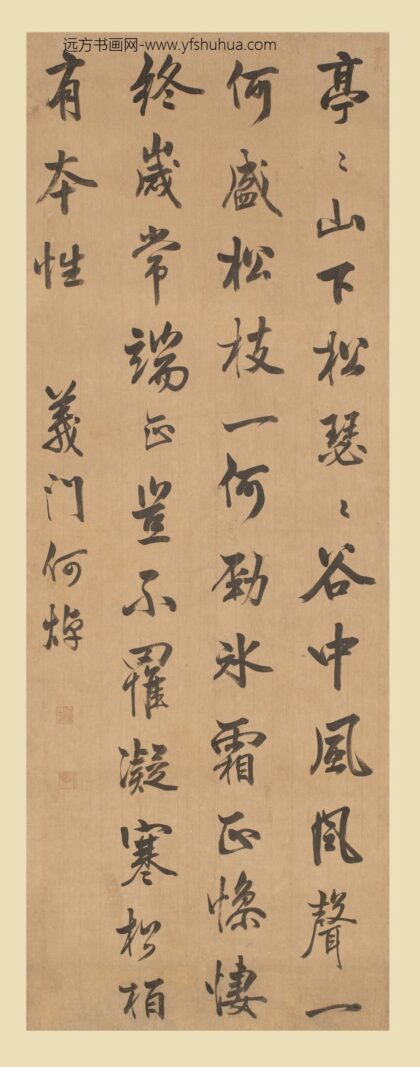 远方书画网-www.yfshuhua.com
亭〻山下松瑟〻谷中風風聲一
何盛松枝一何勁冰霜正慘悽
終歲常端正豈不罹凝寒松柏
有本性 義門何焯